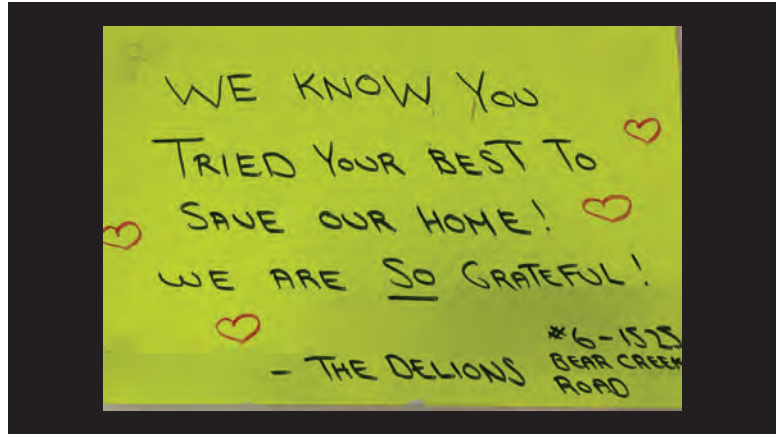 WE KNOW YOU
TRIED YOUR BEST TO
SAVE OUR HOME!
WE ARE SO GRATEFUL!
- THE DELIONS
#6-1525
BEAR CREEK
ROAD